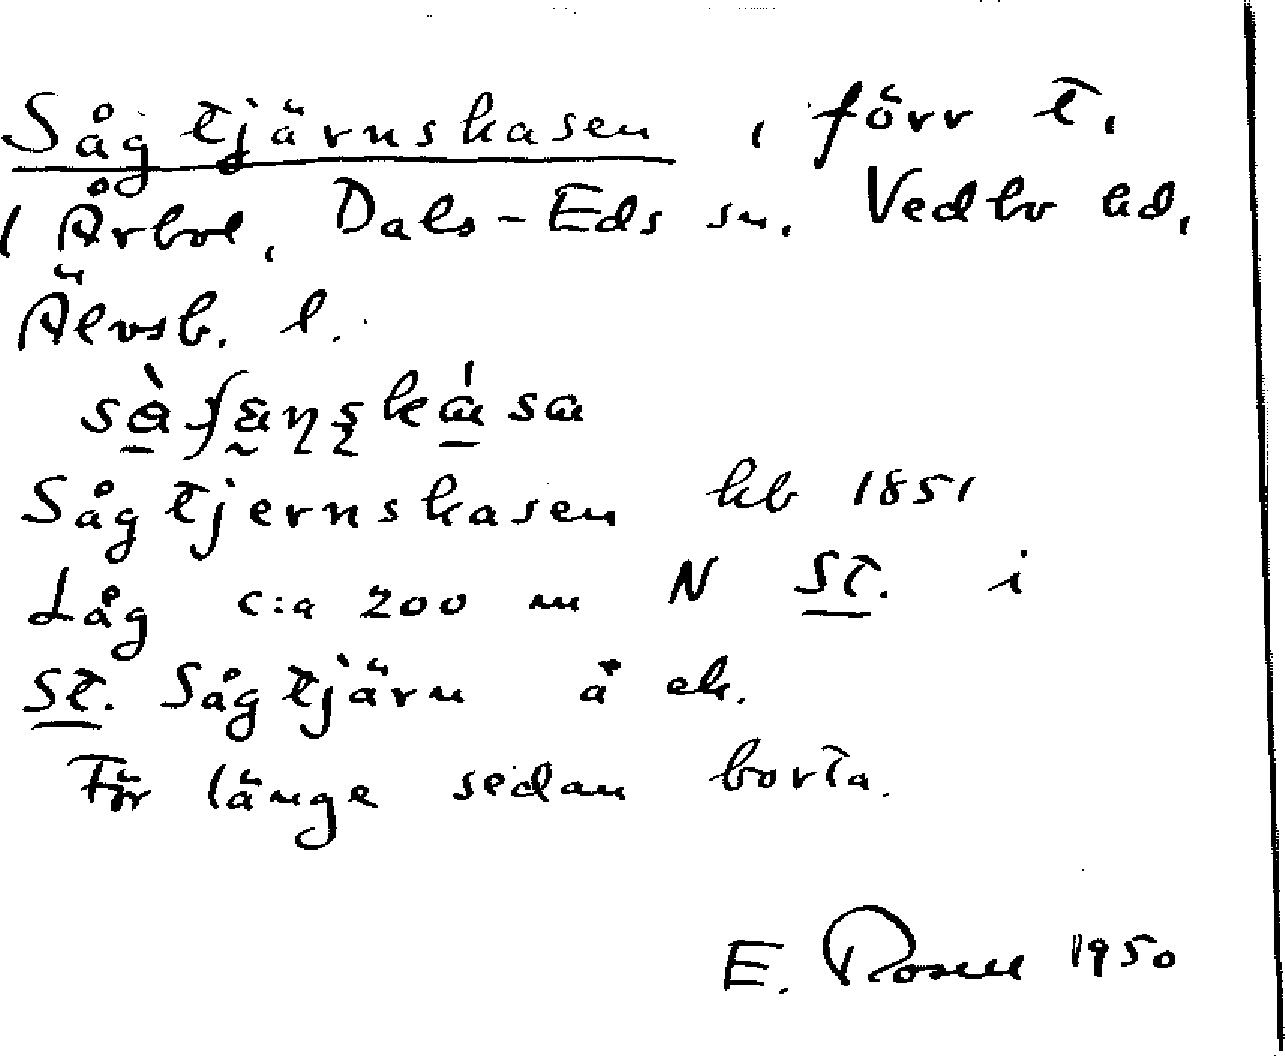 Sågtjärnskasen, förr t.
/ Årbol, Dals-Eds sn. Vedbo hd,
Älvsb. l.
Sågtjernskasen hb 1851
Låg c:a 200 m N ST. i
ST. Sågtjärn å ek.
För länge sedan borta.
E. Rosell 1950